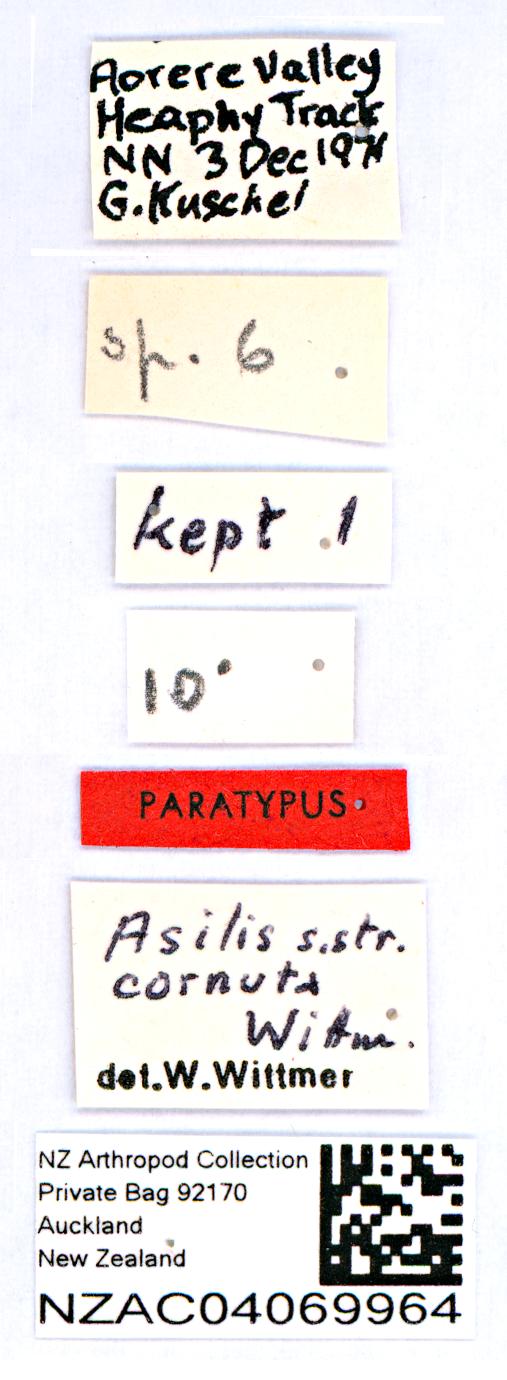 Aorere Valley
Heaphy Track
NN 3 Dec
G. Kuschel
sp. 6
kept 1
10
PARATYPUS
Asilis s.str.
cornuta
Wittm.
det. W. Wittmer
NZ Arthropod Collection
Private Bag 92170
Auckland
New Zealand
NZAC04069964